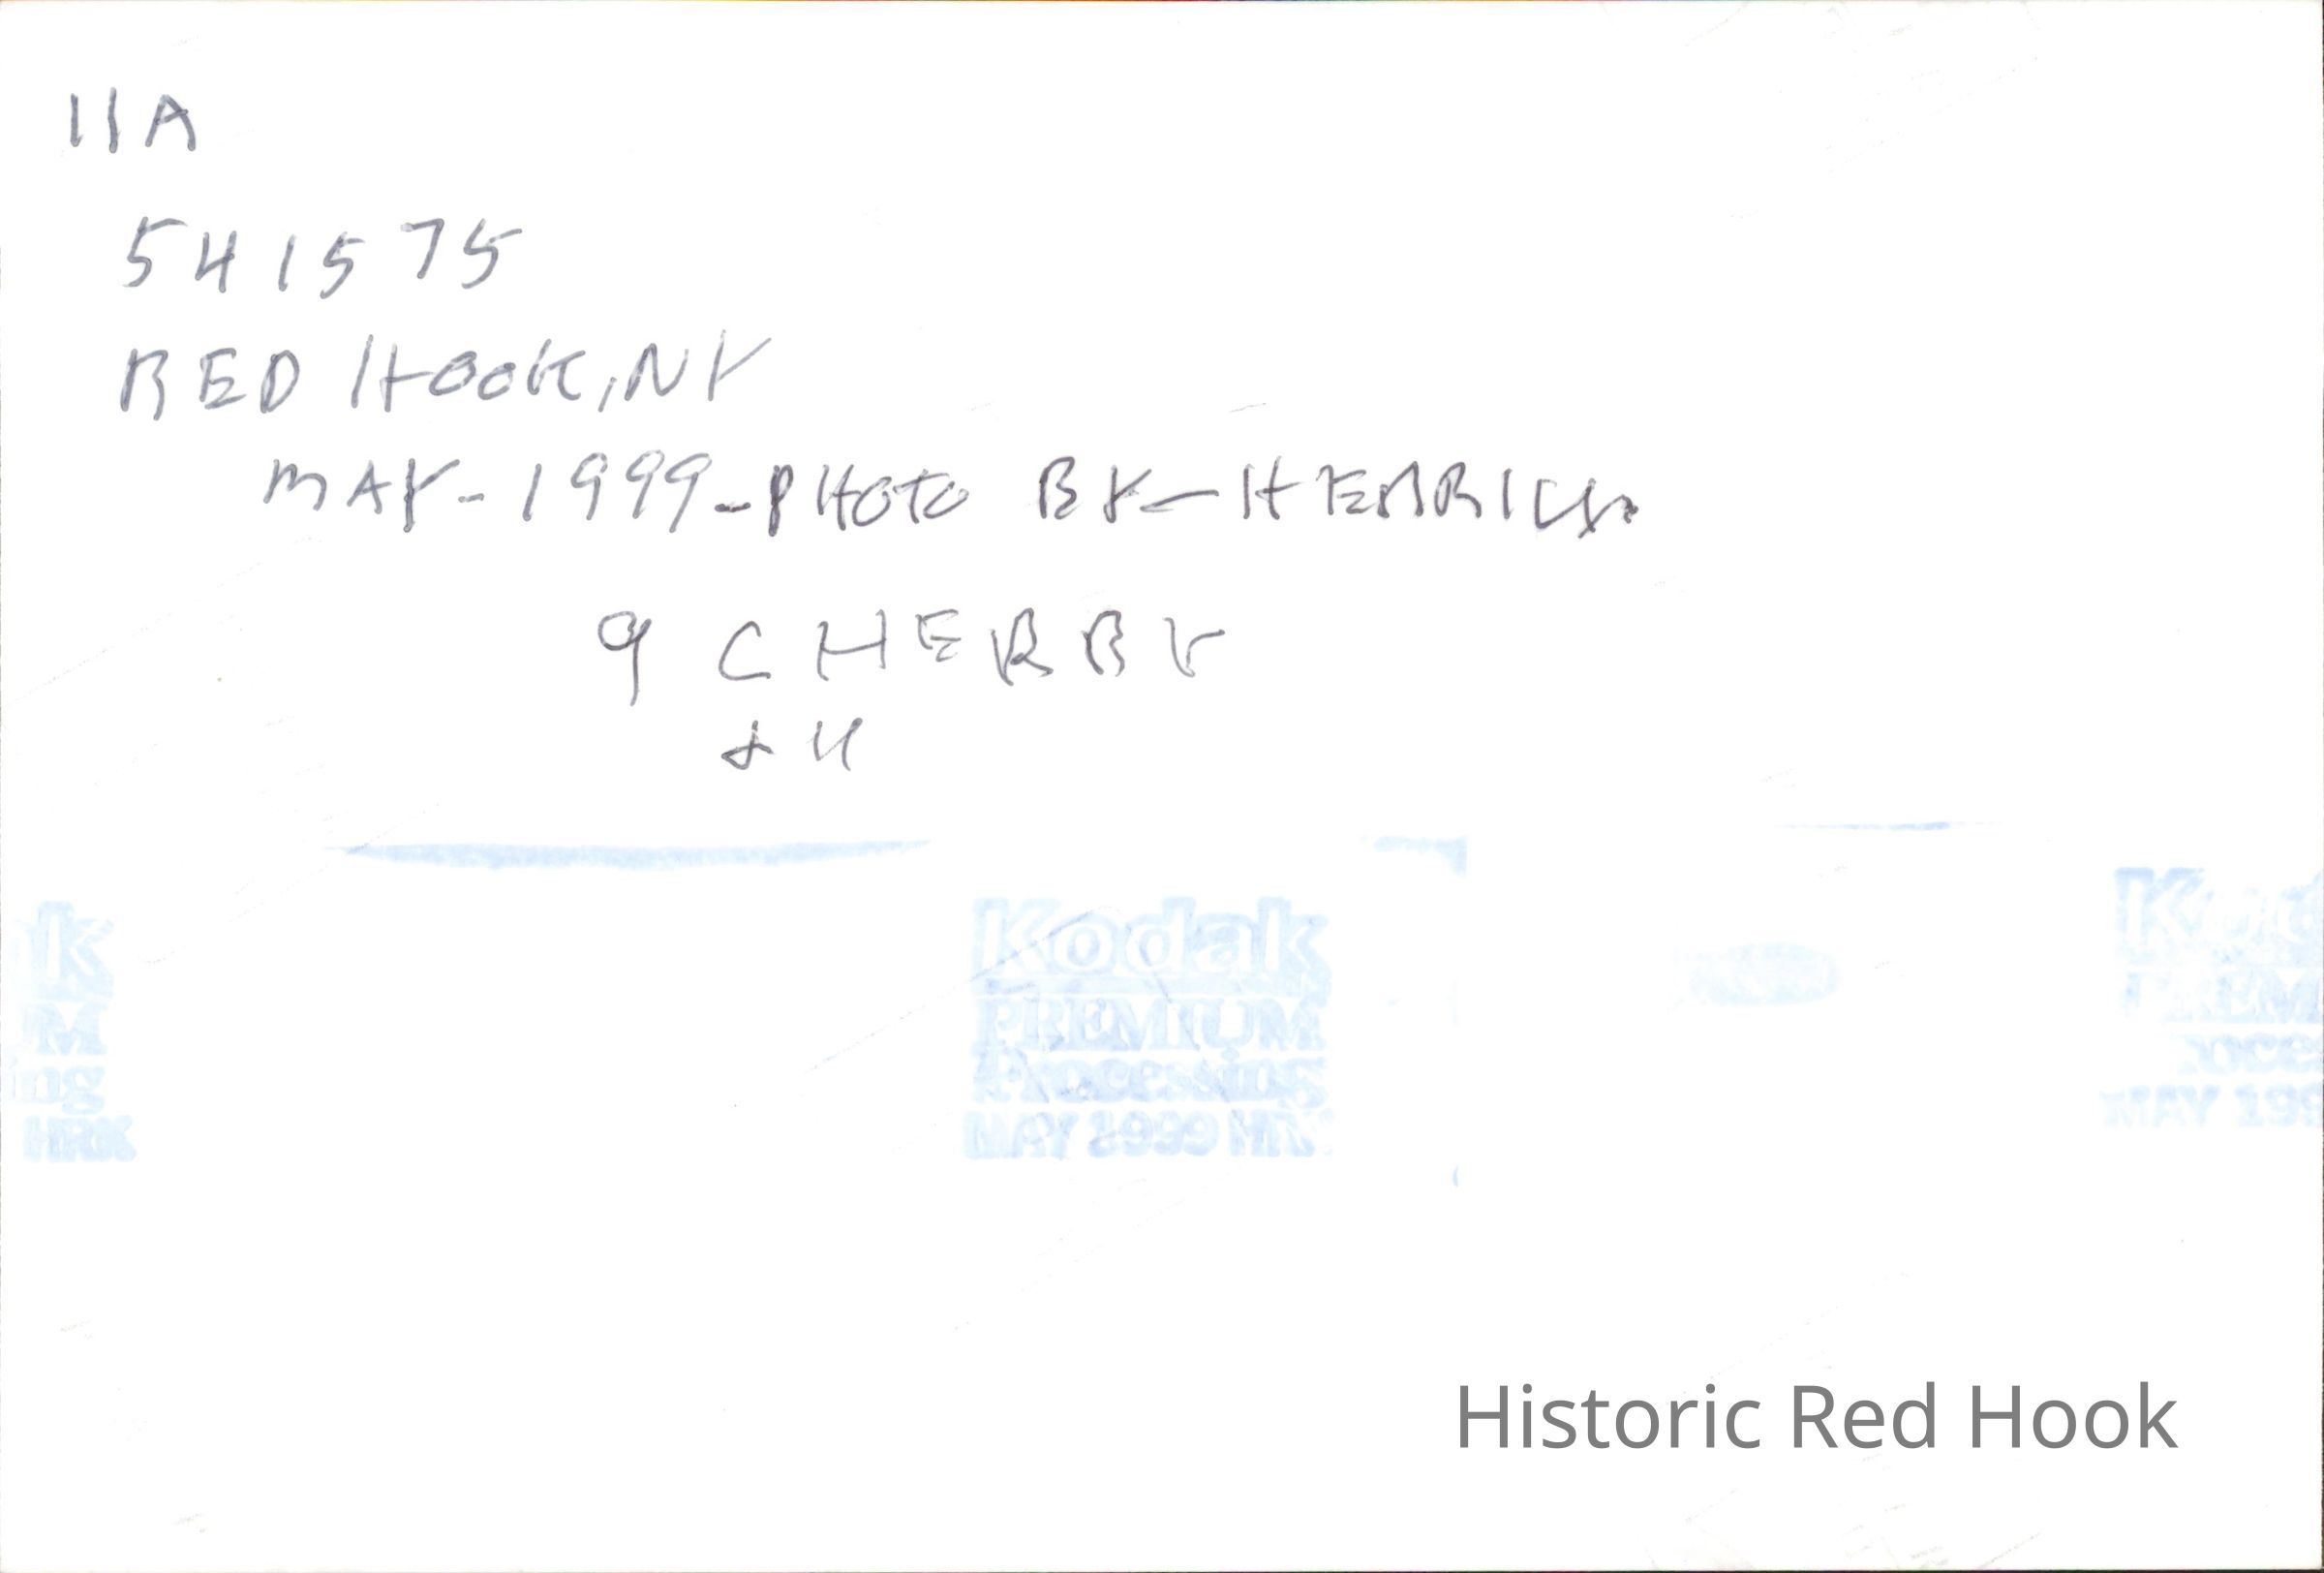 11A
541575
RED HOOK, NY
MAY-1999-PHOTO BY-HERRICK
9 CHERRY
k
M
ng
HRK
Kodak
PREMIUM
Processing
MAY 1999 HRK
PREM
oce
MAY 199
Historic Red Hook